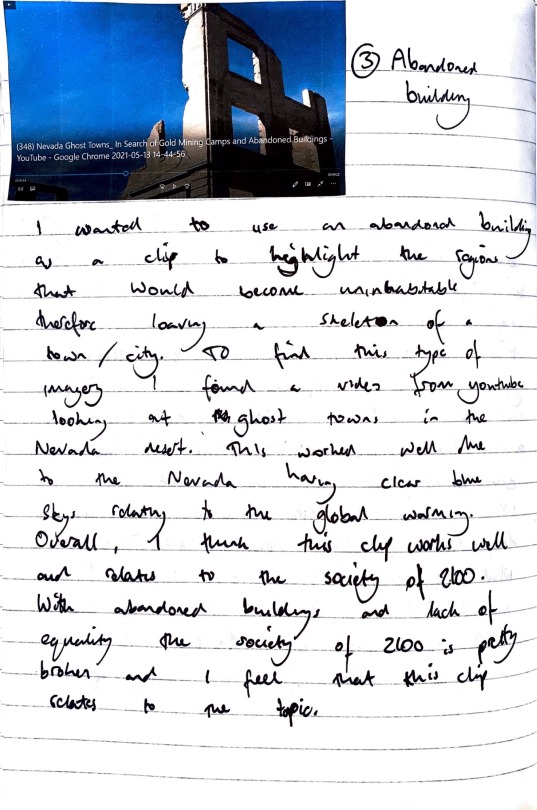 ③ Abandoned
building
(348) Nevada Ghost Towns_ In Search of Gold Mining Camps and Abandoned Buildings -
YouTube - Google Chrome 2021-05-13 14-44-56
I wanted to use an abandoned building
as a clip to highlight the regions
that would become uninhabitable
therefore leaving a skeleton of a
town/city. To find this type of
imagery I found a video from youtube
looking at ghost towns in the
Nevada desert. This worked well due
to the Nevada having clear blue
skys relating to the global warming.
Overall, I think this clip works well
and relates to the society of 2100.
With abandoned buildings and lack of
equality the society of 2100 is pretty
broken and I feel that this clip
relates to the topic.